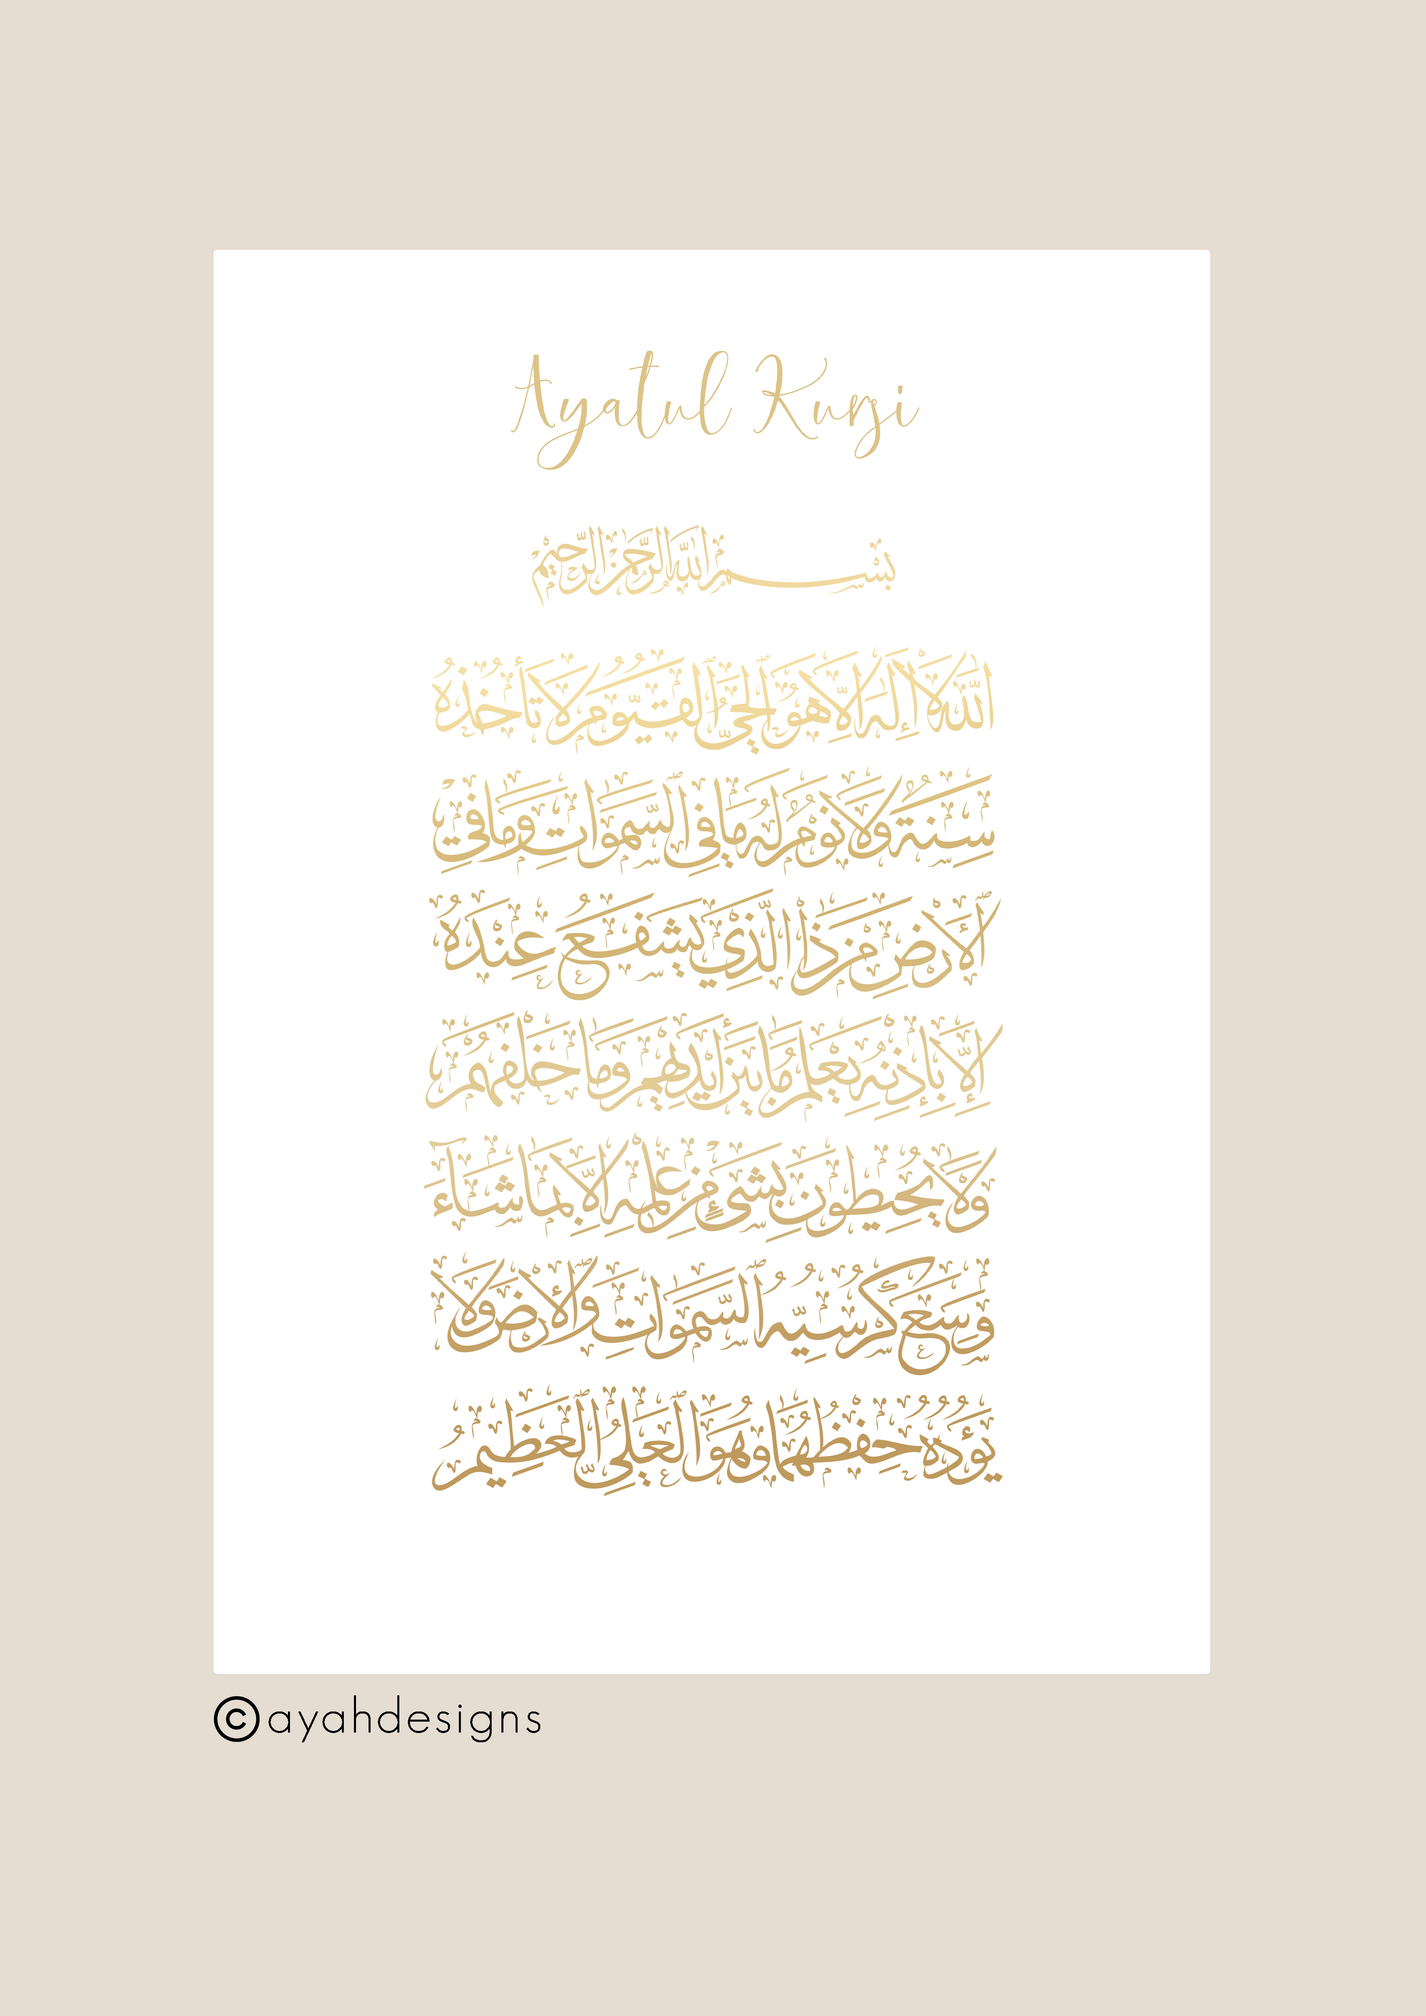 Ayatul Kursi
بِسْمِ اللَّهِ الرَّحْمَٰنِ الرَّحِيمِ
اللَّهُ لَا إِلَٰهَ إِلَّا هُوَ الْحَيُّ الْقَيُّومُ لَا تَأْخُذُهُ
سِنَةٌ وَلَا نَوْمٌ لَهُ مَا فِي السَّمَوَاتِ وَمَا فِي
الْأَرْضِ مَنْ ذَا الَّذِي يَشْفَعُ عِنْدَهُ
إِلَّا بِإِذْنِهِ يَعْلَمُ مَا بَيْنَ أَيْدِيهِمْ وَمَا خَلْفَهُمْ
وَلَا يُحِيطُونَ بِشَيْءٍ مِنْ عِلْمِهِ إِلَّا بِمَا شَاءَ
وَسِعَ كُرْسِيُّهُ السَّمَوَاتِ وَالْأَرْضَ وَلَا
يَؤُدُهُ حِفْظُهُمَا وَهُوَ الْعَلِيُّ الْعَظِيمُ
©ayahdesigns